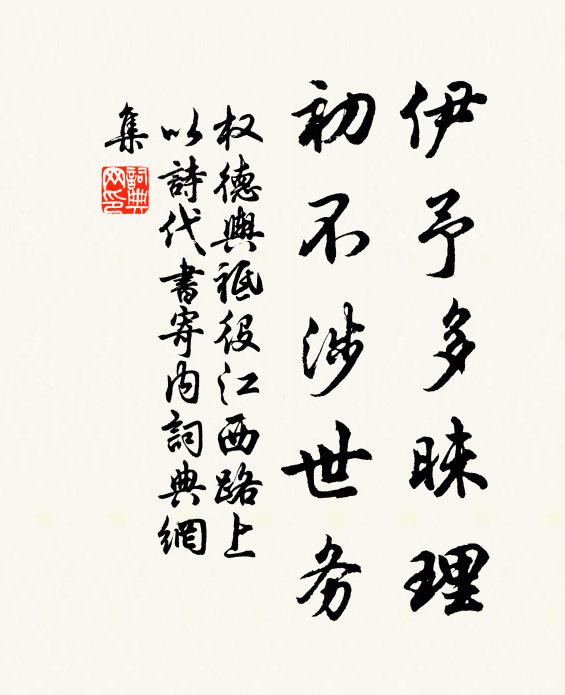 伊予多昧理
初不涉世务
权德舆祗役江西路上
以詩代書寄内詞典網
集
詞典
网印